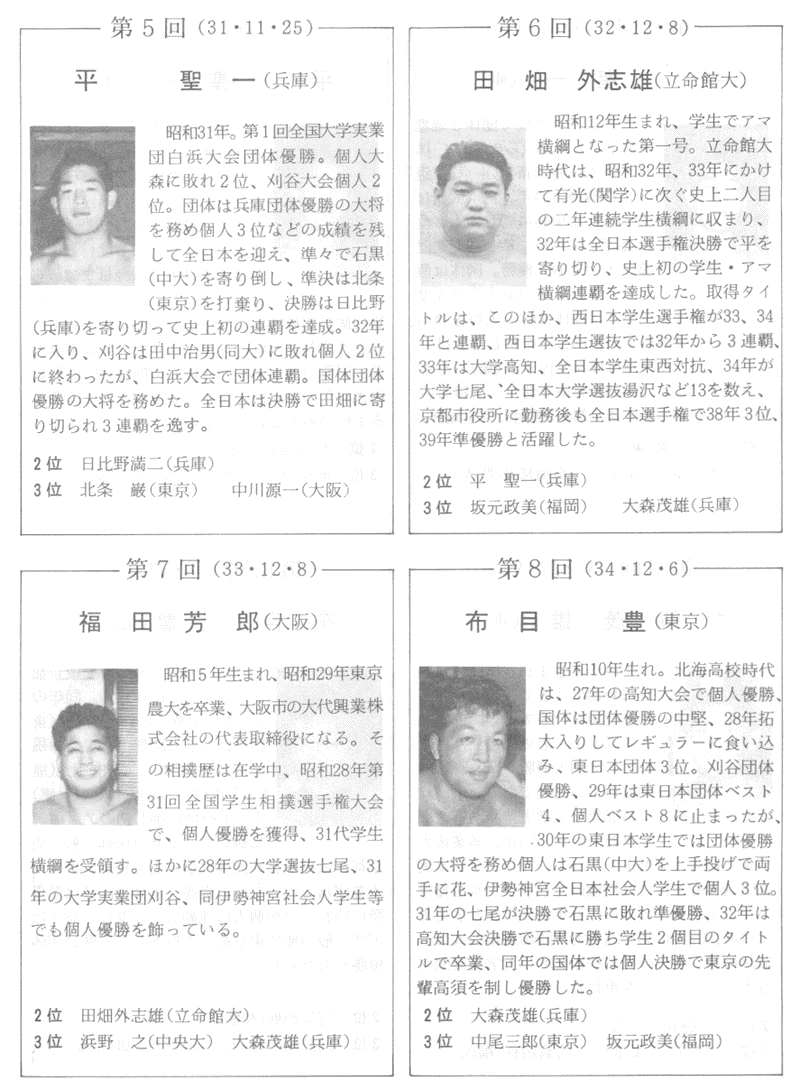 第5回(31・11・25)
平 聖一(兵庫)
昭和31年。第1回全国大学実業
団白浜大会団体優勝。個人大
森に敗れ2位、刈谷大会個人2
位。団体は兵庫団体優勝の大将
を務め個人3位などの成績を残
して全日本を迎え、準々で石黒
(中大)を寄り倒し、準決は北条
(東京)を打棄り、決勝は日比野
(兵庫)を寄り切って史上初の連覇を達成。32年
に入り、刈谷は田中治男(同大)に敗れ個人2位
に終わったが、白浜大会で団体連覇。国体団体
優勝の大将を務めた。全日本は決勝で田畑に寄
り切られ3連覇を逸す。
2位 日比野満二(兵庫)
3位 北条 巌(東京) 中川源一(大阪)
第6回(32・12・8)
田畑 外志雄(立命館大)
昭和12年生まれ、学生でアマ
横綱となった第一号。立命館大
時代は、昭和32年、33年にかけ
て有光(関学)に次ぐ史上二人目
の二年連続学生横綱に収まり、
32年は全日本選手権決勝で平を
寄り切り、史上初の学生・アマ
横綱連覇を達成した。取得タイ
トルは、このほか、西日本学生選手権が33、34
年と連覇、西日本学生選抜では32年から3連覇、
33年は大学高知、全日本学生東西対抗、34年が
大学七尾、全日本大学選抜湯沢など13を数え、
京都市役所に勤務後も全日本選手権で38年3位、
39年準優勝と活躍した。
2位 平 聖一(兵庫)
3位 坂元政美(福岡) 大森茂雄(兵庫)
第7回(33・12・8)
福田芳郎(大阪)
昭和5年生まれ、昭和29年東京
農大を卒業、大阪市の大代興業株
式会社の代表取締役になる。そ
の相撲歴は在学中、昭和28年第
31回全国学生相撲選手権大会
で、個人優勝を獲得、31代学生
横綱を受領す。ほかに28年の大学選抜七尾、31
年の大学実業団刈谷、同伊勢神宮社会人学生等
でも個人優勝を飾っている。
2位 田畑外志雄(立命館大)
3位 浜野 之(中央大) 大森茂雄(兵庫)
第8回(34・12・6)
布目 豊(東京)
昭和10年生れ。北海高校時代
は、27年の高知大会で個人優勝、
国体は団体優勝の中堅、28年拓
大入りしてレギュラーに食い込
み、東日本団体3位。刈谷団体
優勝、29年は東日本団体ベスト
4、個人ベスト8に止まったが、
30年の東日本学生では団体優勝
の大将を務め個人は石黒(中大)を上手投げで両
手に花、伊勢神宮全日本社会人学生で個人3位。
31年の七尾が決勝で石黒に敗れ準優勝、32年は
高知大会決勝で石黒に勝ち学生2個目のタイト
ルで卒業、同年の国体では個人決勝で東京の先
輩高須を制し優勝した。
2位 大森茂雄(兵庫)
3位 中尾三郎(東京) 坂元政美(福岡)